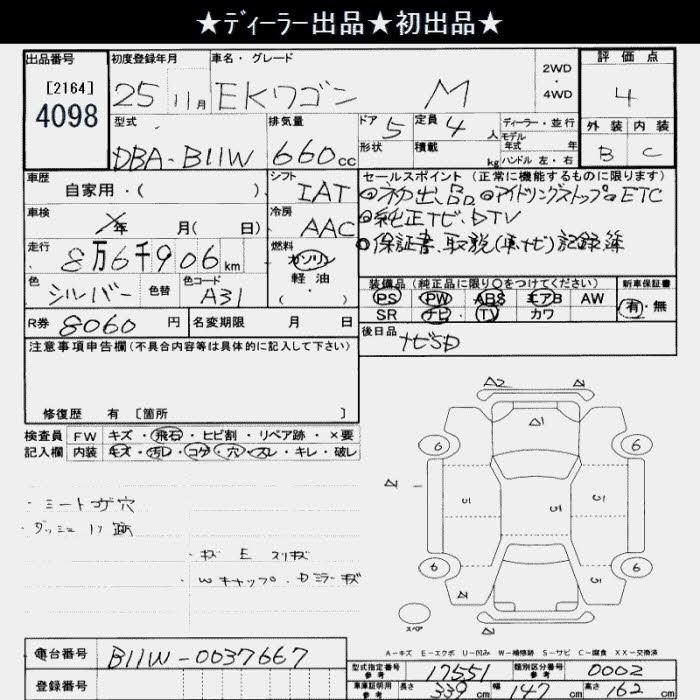 ★ディーラー出品★初出品★
出品番号 初度登録年月 車名・グレード 2WD・4WD 評価点
[2164]
4098
25 11月 EKワゴン M 4
型式 排気量 ドア 5 定員 4人 ディーラー・並行 外装 内装
モデル年式 年
DBA-B11W 660cc 形状 積載 kg ハンドル 左・右 B C
車歴 シフト セールスポイント (正常に機能するものに限ります)
自家用・( ) IAT ◎初出品 ◎アイドリングストップ ◎ETC
車検 冷房 ◎純正ナビ、DTV
年 月( 日) AAC
走行 燃料 ◎保証書、取説(車、ナビ)記録簿
8万6千906km ガソリン
軽油
( ・ )
色 色替 色コード
シルバー A31
装備品 (純正品に限り○をつけてください) 新車保証書
PS PW ABS エアB AW 有・無
SR ナビ TV カワ
R券 8060円 名変期限 月 日
後日品 ナビSD
注意事項申告欄(不具合内容等は具体的に記入して下さい)
修復歴 有 [箇所 ]
検査員 FW キズ・飛石・ヒビ割・リペア跡・×要
記入欄 内装 キズ・汚レ・コゲ・穴・スレ・キレ・破レ
・シートコゲ穴
・キズ E スリキズ
・Wキャップ、ドミラーキズ
A2 A1
A1
6 6
6 6
スペア
A-キズ E-エクボ U-凹み W-補修跡 S-サビ C-腐食 XX-交換済
車台番号 B11W-0037667
型式指定番号 参考 17551 類別区分番号 参考 0002
登録番号
車庫証明用 参考 長さ 339cm 幅 147cm 高さ 162cm